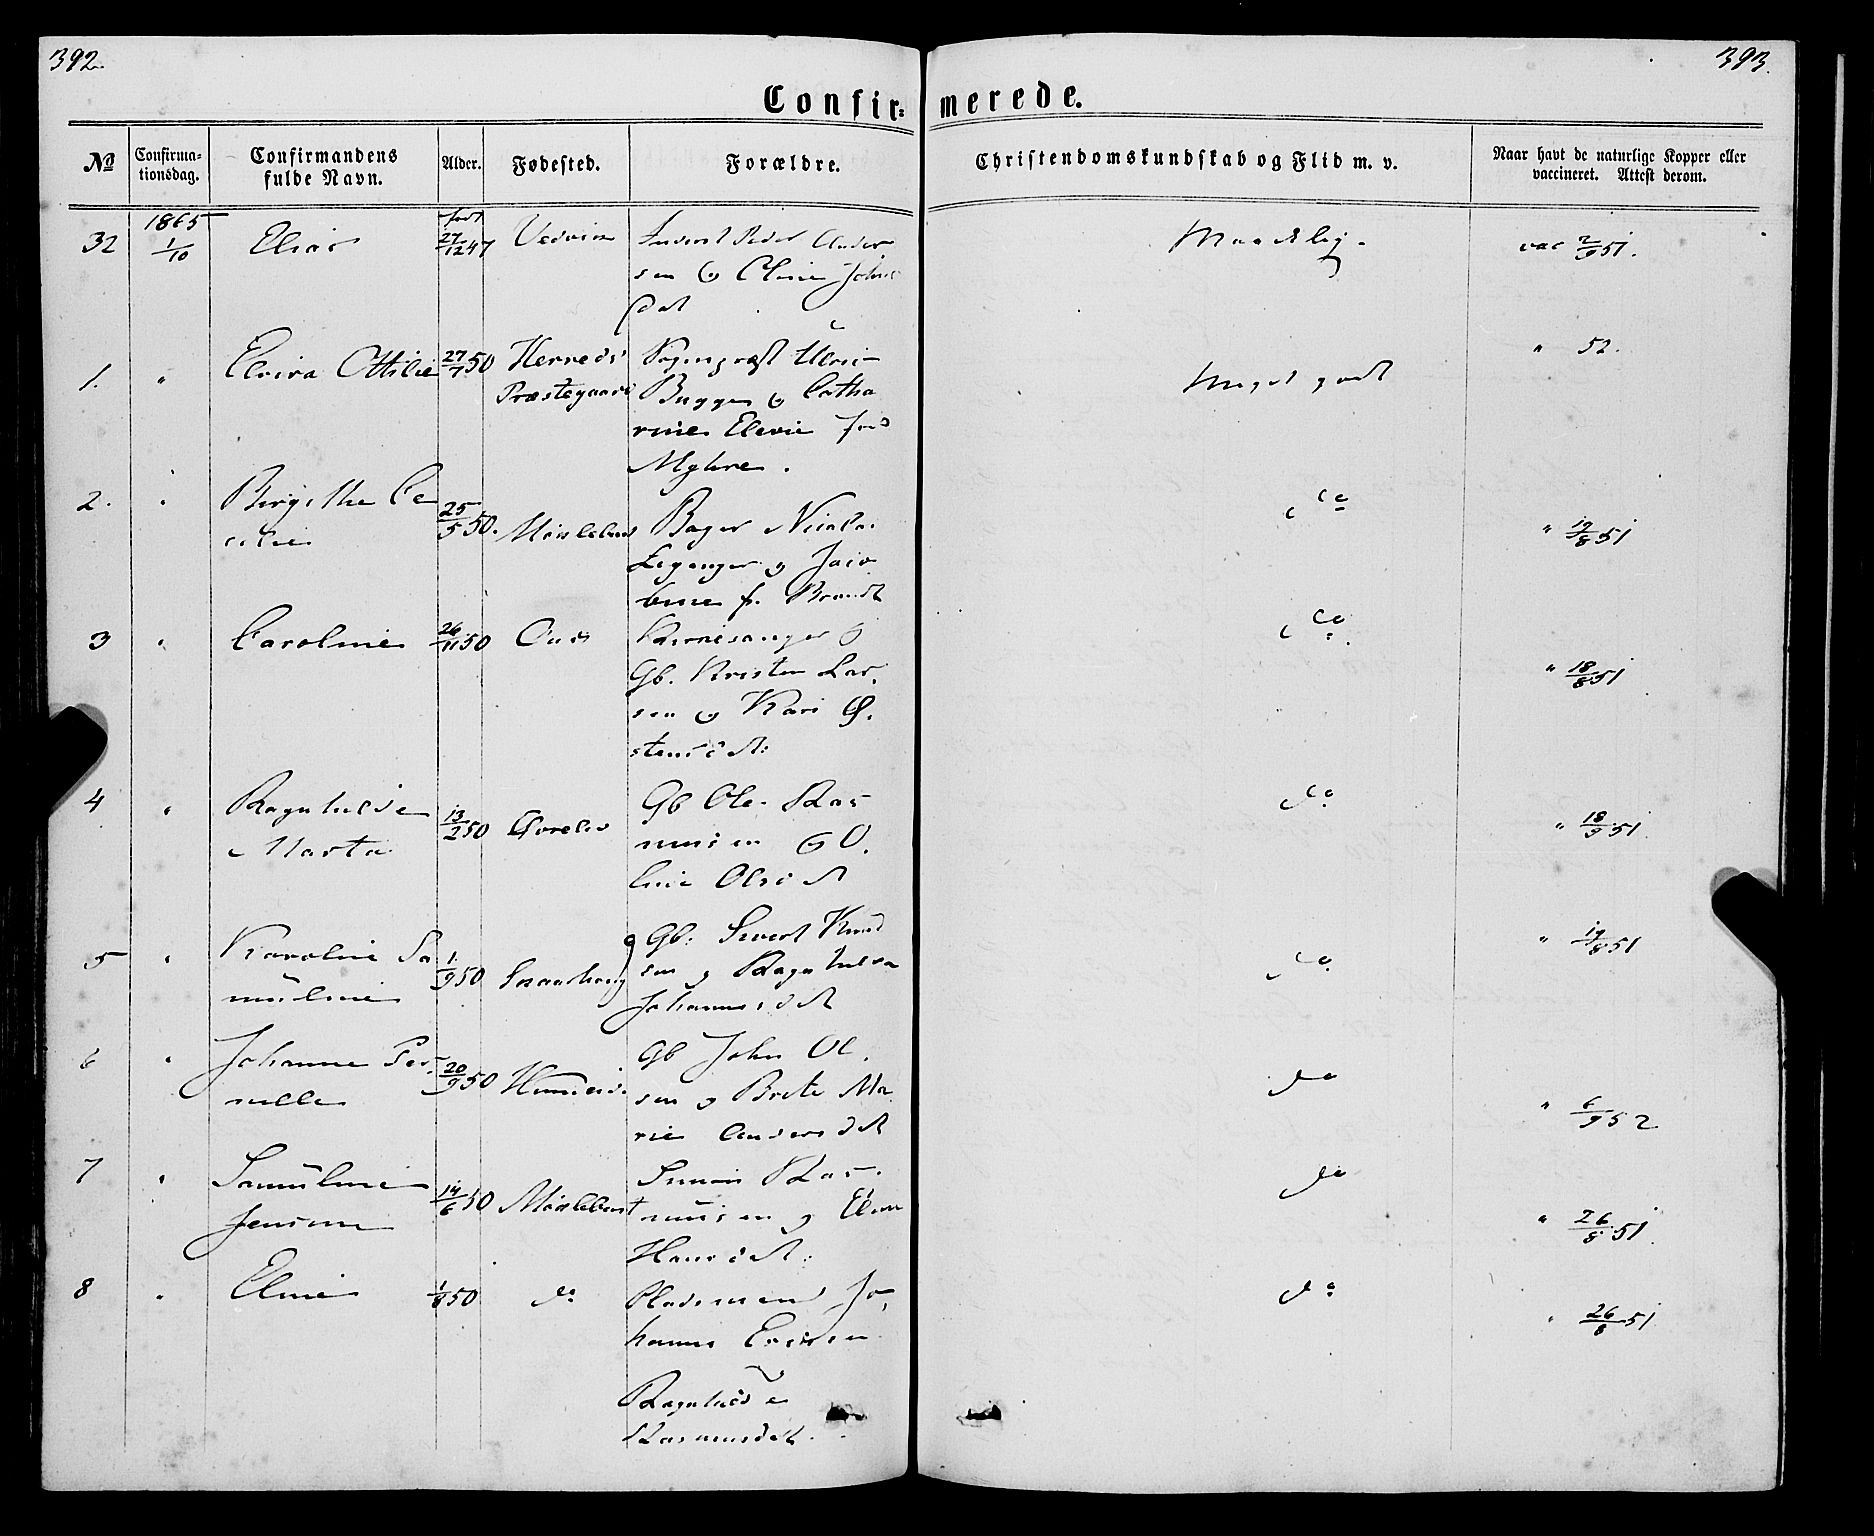 392.
393.
Confir= merede.
No
Confirma=
tionsdag.
Confirmandens
fulde Navn.
Alder.
Fødested.
Forældre.
Christendomskundskab og Flid m. v.
Naar havt de naturlige Kopper eller
vaccineret. Attest derom.
32 1865 1/10 Elias født 27/12 47 Peder Ander
sen & Oline Johns
dat
Maadelig. vac 2/9 51.
1. " Elvira Ottilie 27/7 50 Herreds
Præstegaard
Sognepræst
Bugge & Catha
rine født
Myhre.
Meget godt
" 52.
2. " Birgithe Ce
cilie 25/5 50. Bager Nicolai
Leganger & Jaco
bine f. Brandt
do
" 19/8 51
3 " Caroline 26/11 50 Kirkesanger &
Gb. Kristen Lar
sen & Kari Ø.
stensdt:
do
" 18/8 51
4 " Ragnhilde
Marta 13/2 50 Gb Ole Ras
musen & O.
line Olsdt
do
" 18/9 51.
5 " Karoline Sa
müline 1/9 50 Gb: Sivert Knud
sen & Ragnhilda
Johannesdt
do
" 19/8 51
6 " Johanne Per
nelle 20/9 50 Gb John Ol.
sen & Brite Ma
rie Andersdt
do
" 6/9 52
7 " Samüline
Jensine 14/6 50 Simon Ras
müsen & Elen
Hansdt:
do
" 26/8 51.
8 " Eline 1/8 50 do Pladsmand Jo
hannes
Ragnhilde
Rasmusdt.
do
" 26/8 51